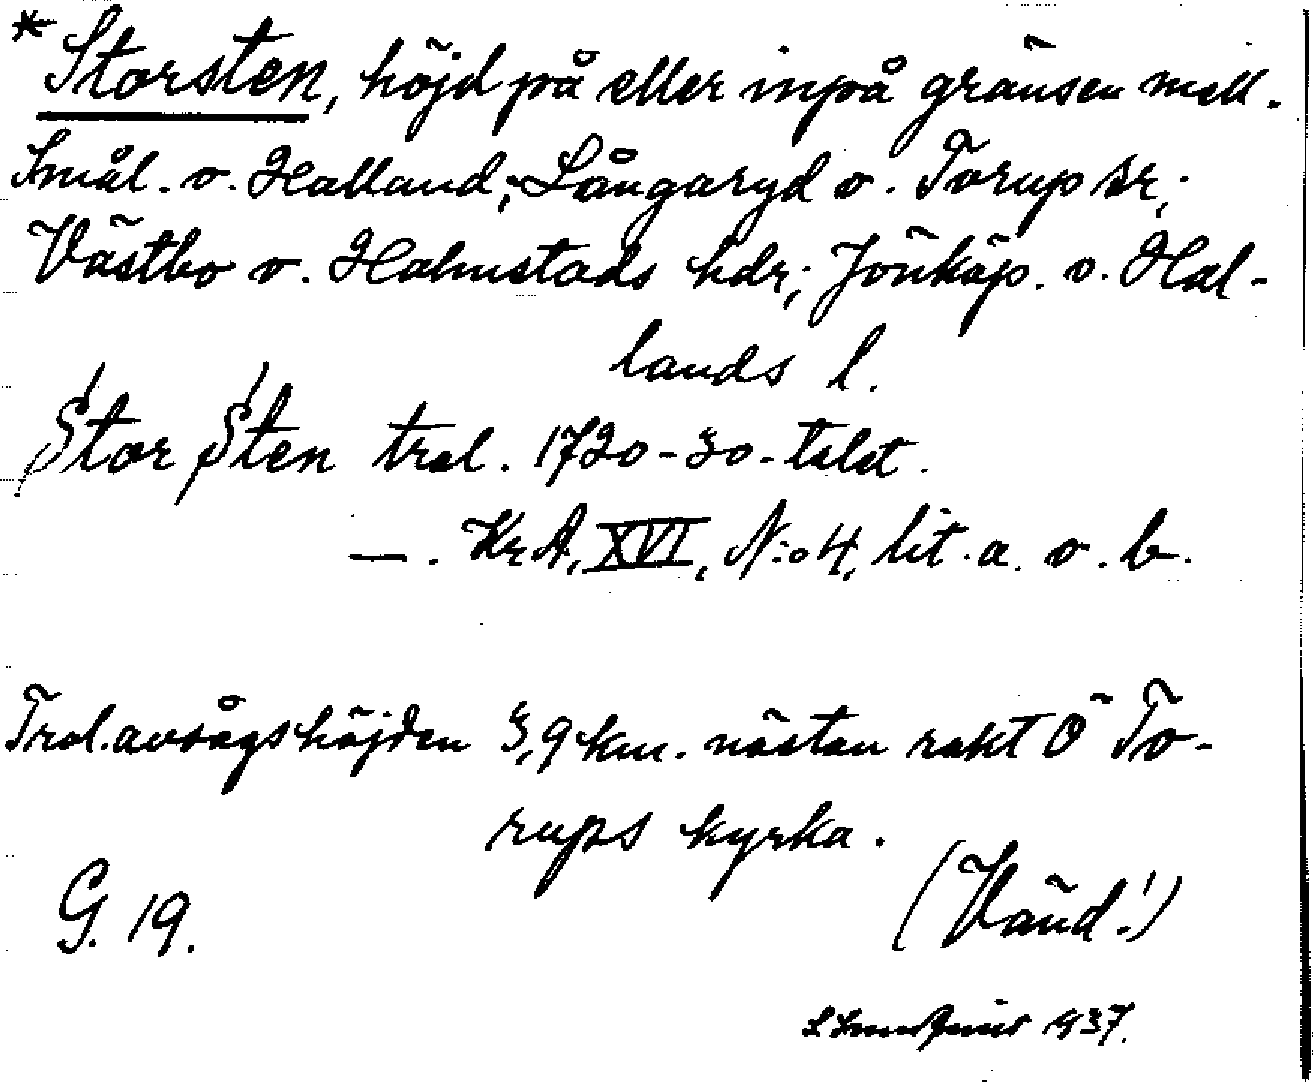 *Storsten, höjd på eller inpå gränsen mell.
Smål. o. Halland; Långaryd o. Torup sr;
Västbo o. Halmstads hdr; Jönköp. o. Hal-
lands l.
Stor Sten trol. 1720-30-talet.
—. KrA, XVI, N:o 4, lit. a. o. b.
Trol. avsågs höjden 3,9 km. nästan rakt Ö To-
rups kyrka.
G. 19.
(Vänd!)
1937.